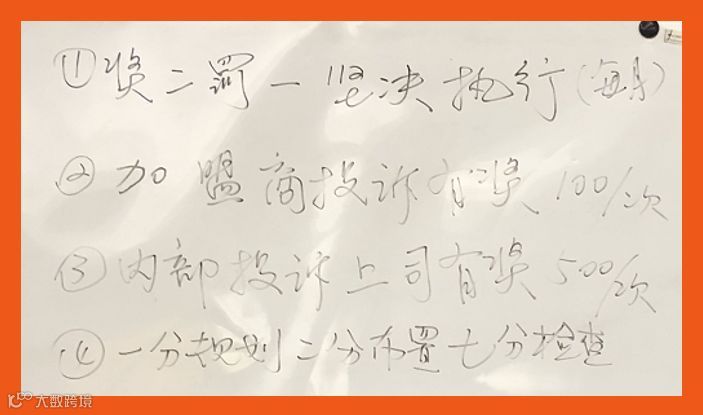 ①奖二罚一坚决执行(每月)
②加盟商投诉有奖100/次
③内部投诉上司有奖500/次
④一分规划二分布置七分检查
大数跨境